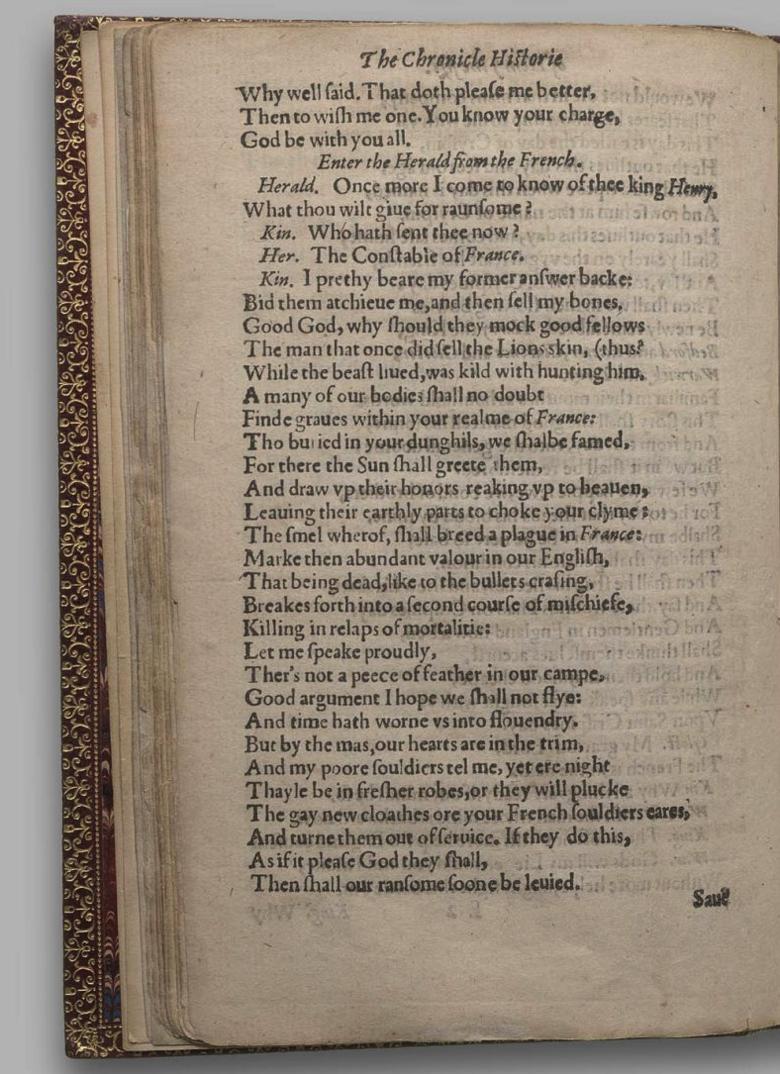 The Chronicle Historie
Why well ſaid. That doth pleaſe me better,
Then to wiſh me one. You know your charge,
God be with you all.
Enter the Herald from the French.
Herald. Once more I come to know of thee king Henry,
What thou wilt giue for raunſome?
Kin. Who hath ſent thee now?
Her. The Conſtable of France.
Kin. I prethy beare my former anſwer backe:
Bid them atchieue me, and then ſell my bones,
Good God, why ſhould they mock good fellows
The man that once did ſell the Lions skin, (thus?
While the beaſt liued, was kild with hunting him,
A many of our bodies ſhall no doubt
Finde graues within your realme of France:
Tho buried in your dunghils, we ſhalbe famed,
For there the Sun ſhall greete them,
And draw vp their honors reaking vp to heauen,
Leauing their earthly parts to choke your clyme:
The ſmel wherof, ſhall breed a plague in France:
Marke then abundant valour in our Engliſh,
That being dead, like to the bullets craſing,
Breakes forth into a ſecond courſe of miſchiefe,
Killing in relaps of mortalitie:
Let me ſpeake proudly,
Ther's not a peece of feather in our campe,
Good argument I hope we ſhall not flye:
And time hath worne vs into ſlouendry.
But by the mas, our hearts are in the trim,
And my poore ſouldiers tel me, yet ere night
Thayle be in freſher robes, or they will plucke
The gay new cloathes ore your French ſouldiers eares,
And turne them out of ſeruice. If they do this,
As if it pleaſe God they ſhall,
Then ſhall our ranſome ſoone be leuied.
Saue